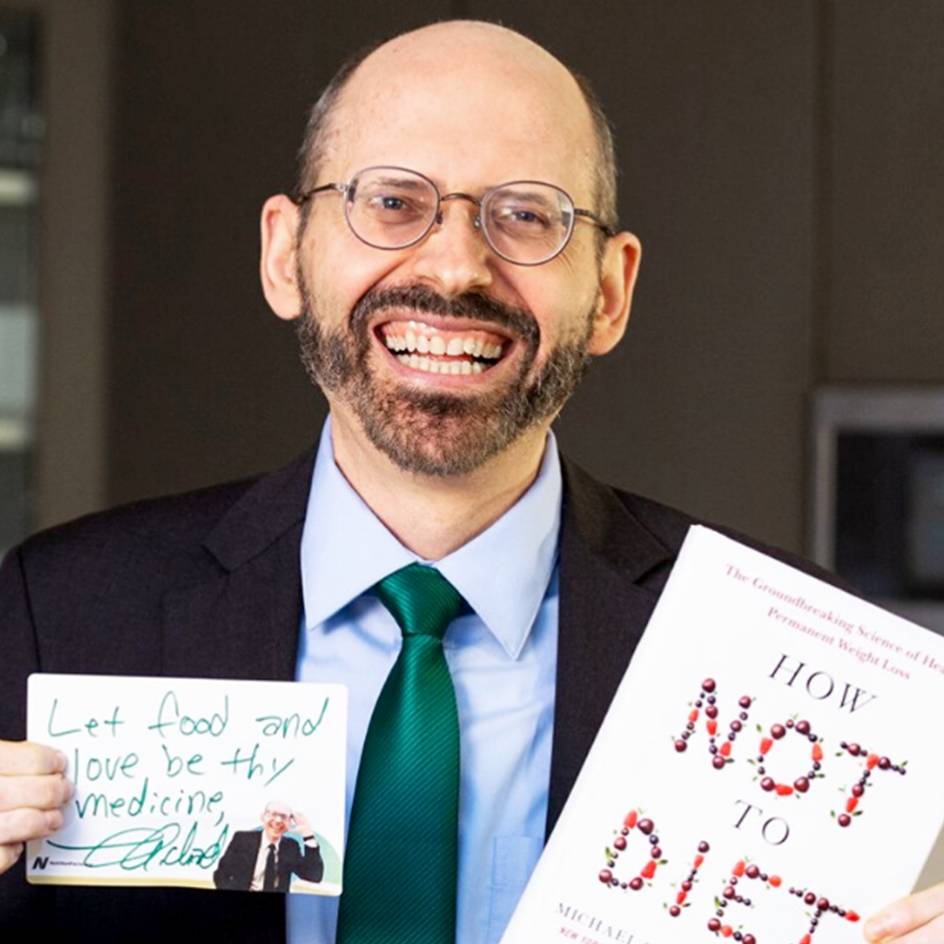 Let food and
love be thy
medicine,
The Groundbreaking Science of
Permanent Weight Loss
HOW
NOT
TO
DIET
MICHAEL